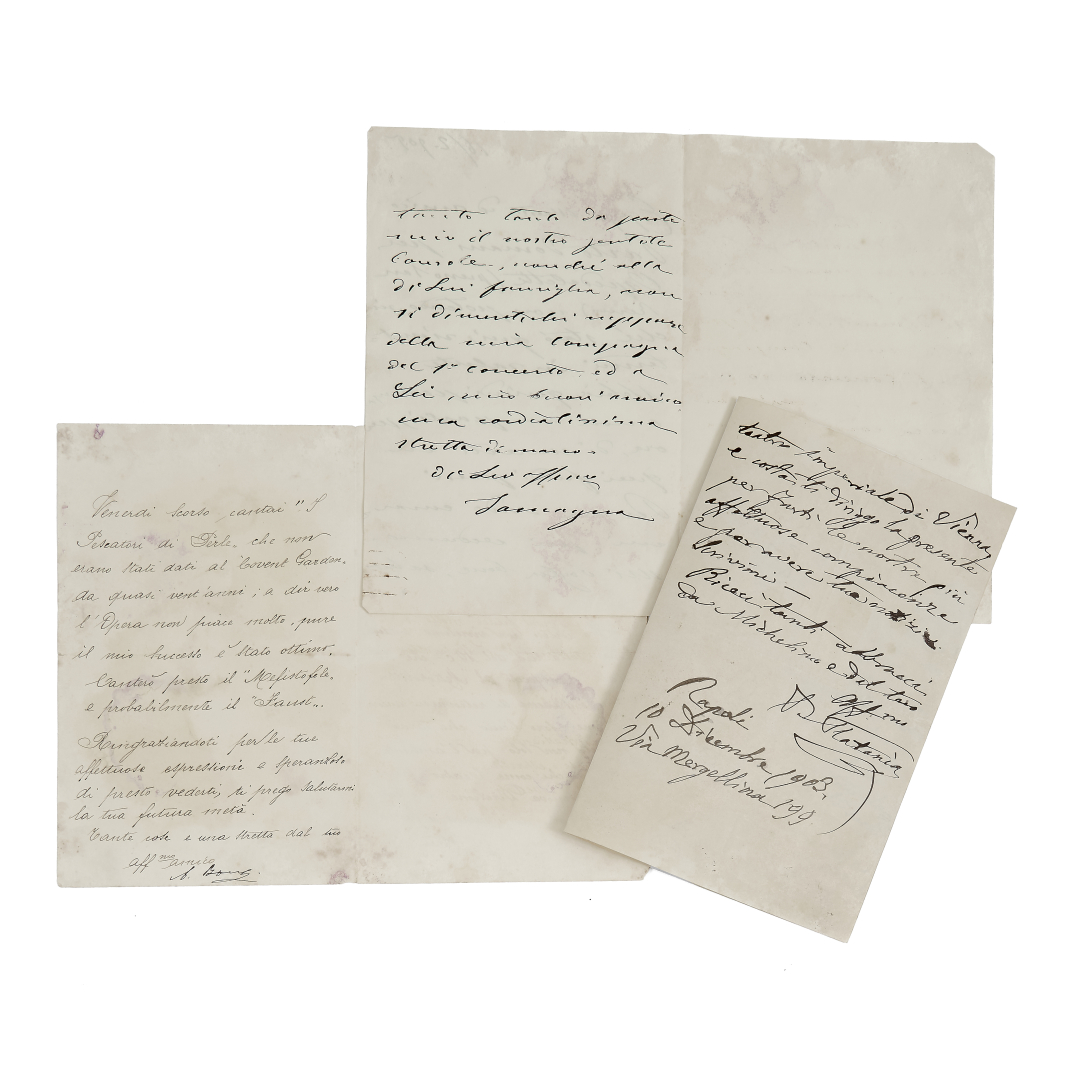 tanto tanto da parte
mio il nostro gentile
Console, nonché alla
di Lui famiglia, non
si dimentichi neppure
della mia Compagna
del 1º concerto ed a
Lei, mio buon amico
una cordialissima
stretta di mano.
di Leo affmo
Tamagno
Venerdi scorso cantai "I
Pescatori di Perle" che non
erano stati dati al Covent Garden,
da quasi vent'anni; a dir vero
l'Opera non piace molto, pure
il mio successo é stato ottimo.
Canterò presto il "Mefistofele"
e probabilmente il "Faust".
Ringraziandoti per le tue
affettuose espressioni e sperandolo
di presto vederti, ti prego salutarmi
la tua futura metà.
Tante cose e una stretta dal tuo
aff mo amico
A. Bonci.
teatro imperiale di Vienna,
e costà ti dirigo la presente
per farti le nostre più
affettuose
e per avere tue notizie.
Scrivimi —
Ricevi tanti abbracci
da Michelino e dal tuo
aff mo
P. Platania
Napoli
10 Dicembre 1903.
Via Mergellina 199